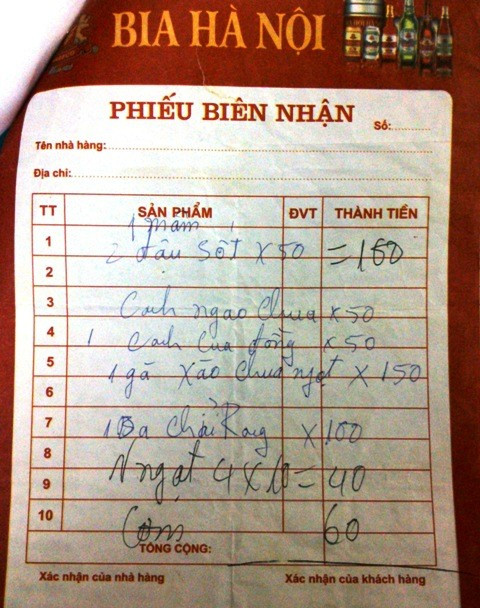 BIA HÀ NỘI
PHIẾU BIÊN NHẬN
Số:
Tên nhà hàng:
Địa chỉ:
TT SẢN PHẨM ĐVT THÀNH TIỀN
1
2 đậu sốt x 50 =
2
3 Canh ngao chua x 50
4 1 Canh cua đồng x 50
5 1 gà xào chua ngọt x 150
6
7 1 chải x 100
8
9 N ngọt 4 x 10 = 40
10 Cơm 60
TỔNG CỘNG:
Xác nhận của nhà hàng Xác nhận của khách hàng